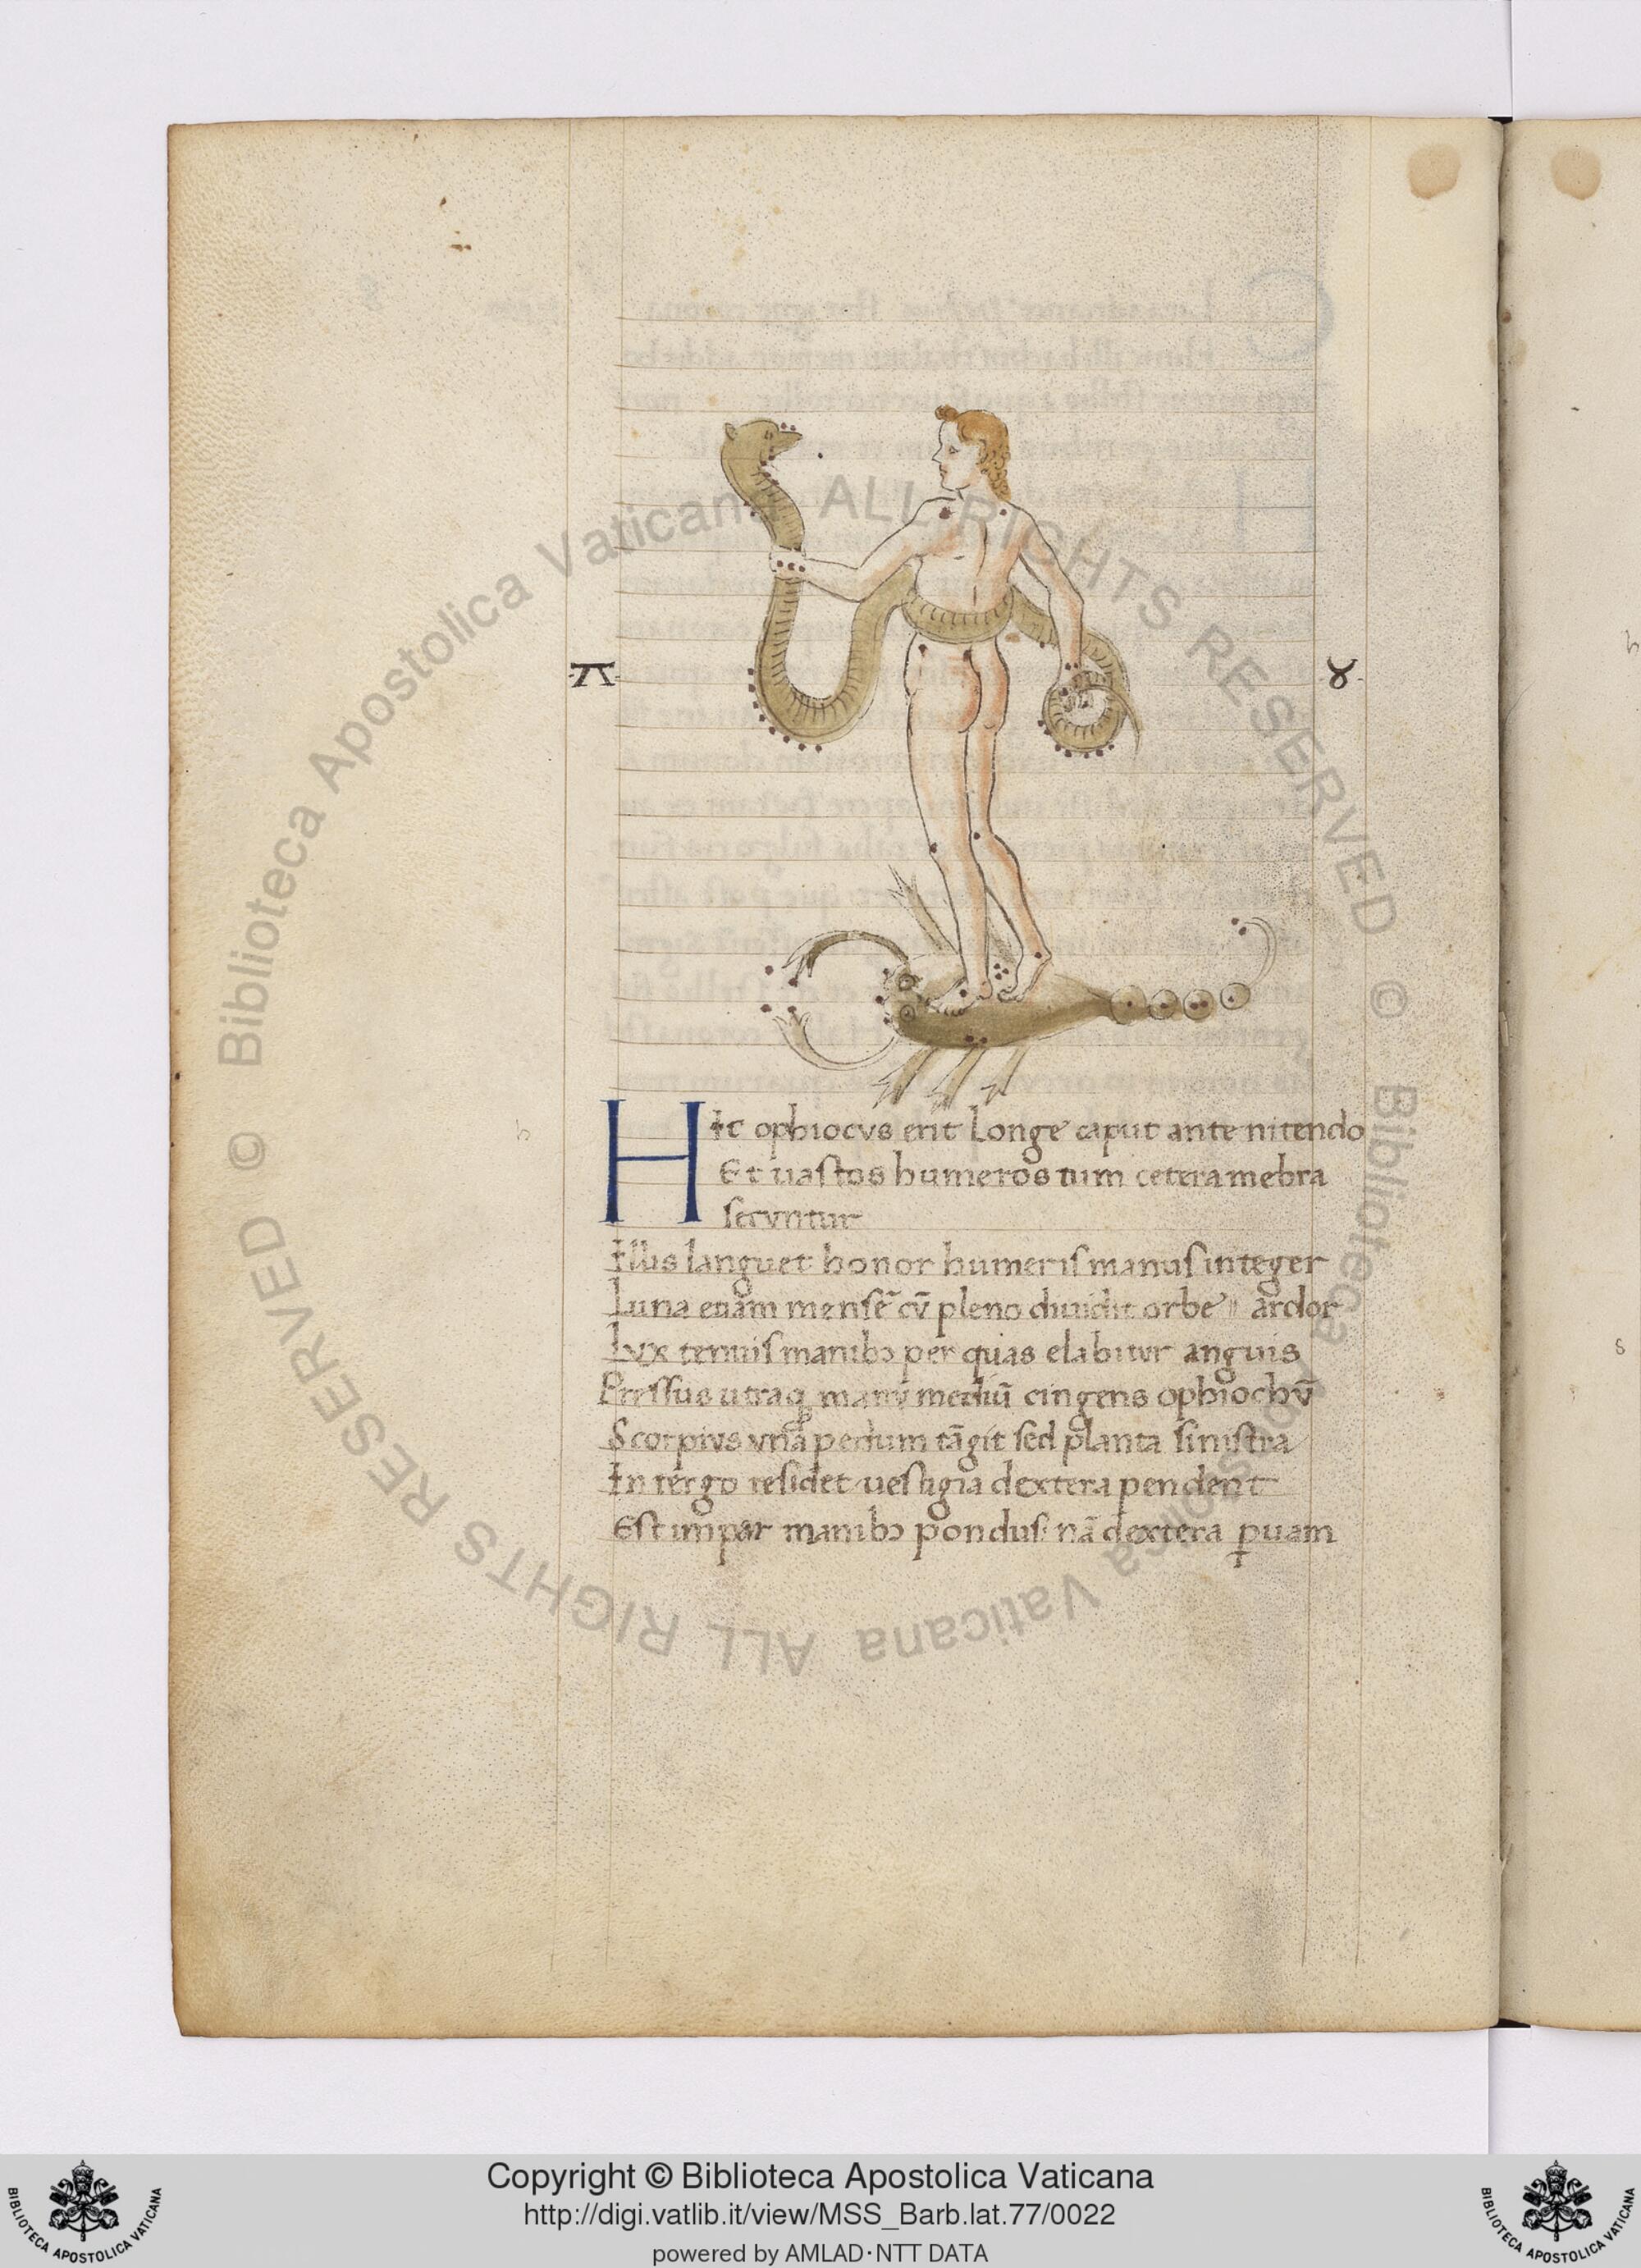 ·π· ·ꝩ·
Hic ophiocus erit Longe caput ante nitendo
Et uastos humeros tum cetera mēbra
secuntur
Illis languet honor humeris manus integer
Luna etiam mensē cū pleno diuidit orbē ardor
Lux tenuis manibꝫ per quas elabitur anguis
Pressus utraqꝫ manu mediū cingens ophiochū
Scorpius ima pedum tāgit sed planta sinistra
In tergo residet uestigia dextera pendent
Est impar manibꝫ pondus nā dextera ꝑuam
Biblioteca Apostolica Vaticana ALL RIGHTS RESERVED ©
Biblioteca Apostolica Vaticana ALL RIGHTS RESERVED ©
Copyright © Biblioteca Apostolica Vaticana
http://digi.vatlib.it/view/MSS_Barb.lat.77/0022
powered by AMLAD·NTT DATA
BIBLIOTECA APOSTOLICA VATICANA
BIBLIOTECA APOSTOLICA VATICANA